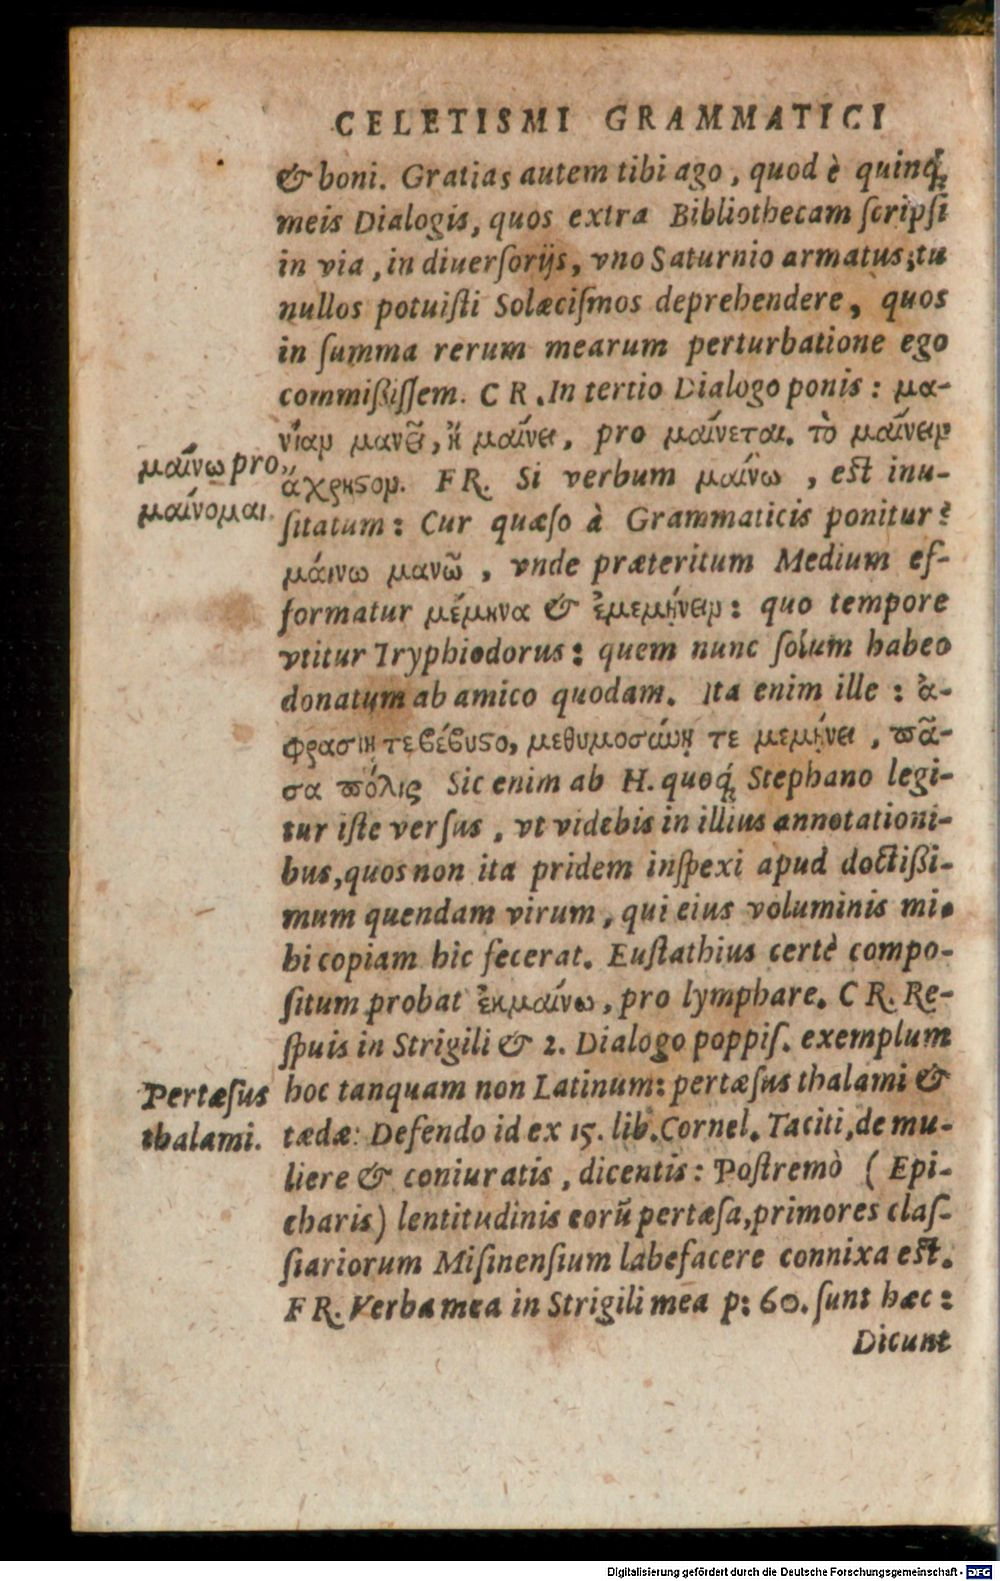 CELETISMI GRAMMATICI
& boni. Gratias autem tibi ago, quod è quinq́;
meis Dialogis, quos extra Bibliothecam ſcripſi
in via, in diuerſorijs, vno Saturnio armatus; tu
nullos potuiſti Solæciſmos deprehendere, quos
in ſumma rerum mearum perturbatione ego
commißiſſem. C R. In tertio Dialogo ponis: μα-
νίαν μανῶ, ἢ μαίνει, pro μαίνεται. τὸ μαίνειν
μαίνω pro
ἄχρηϛον. F R. Si verbum μαίνω, est inu-
μαίνομαι.
ſitatum: Cur quæſo à Grammaticis ponitur?
μάινω μανῶ, vnde præteritum Medium ef-
formatur μέμηνα & ἐμεμήνειν: quo tempore
vtitur Tryphiodorus: quem nunc ſolum habeo
donatum ab amico quodam. Ita enim ille: ἀ-
φρασίη τε βέβυϛο, μεθυμοσύνῃ τε μεμήνει, πᾶ-
σα πόλις Sic enim ab H. quoq́; Stephano legi-
tur iſte verſus, vt videbis in illius annotationi-
bus, quos non ita pridem inſpexi apud doctißi-
mum quendam virum, qui eius voluminis mi-
hi copiam hic fecerat. Euſtathius certè compo-
ſitum probat ἐκμαίνω, pro lymphare. C R. Re-
ſpuis in Strigili & 2. Dialogo poppiſ. exemplum
Pertæſus
hoc tanquam non Latinum: pertæſus thalami &
thalami.
tædæ: Defendo id ex 15. lib. Cornel. Taciti, de mu-
liere & coniuratis, dicentis: Poſtremò (Epi-
charis) lentitudinis eorũ pertæſa, primores claſ-
ſiariorum Miſinenſium labefacere connixa eſt.
F R. Verba mea in Strigili mea p: 60. ſunt hæc:
Dicunt
Digitalisierung gefördert durch die Deutsche Forschungsgemeinschaft - DFG